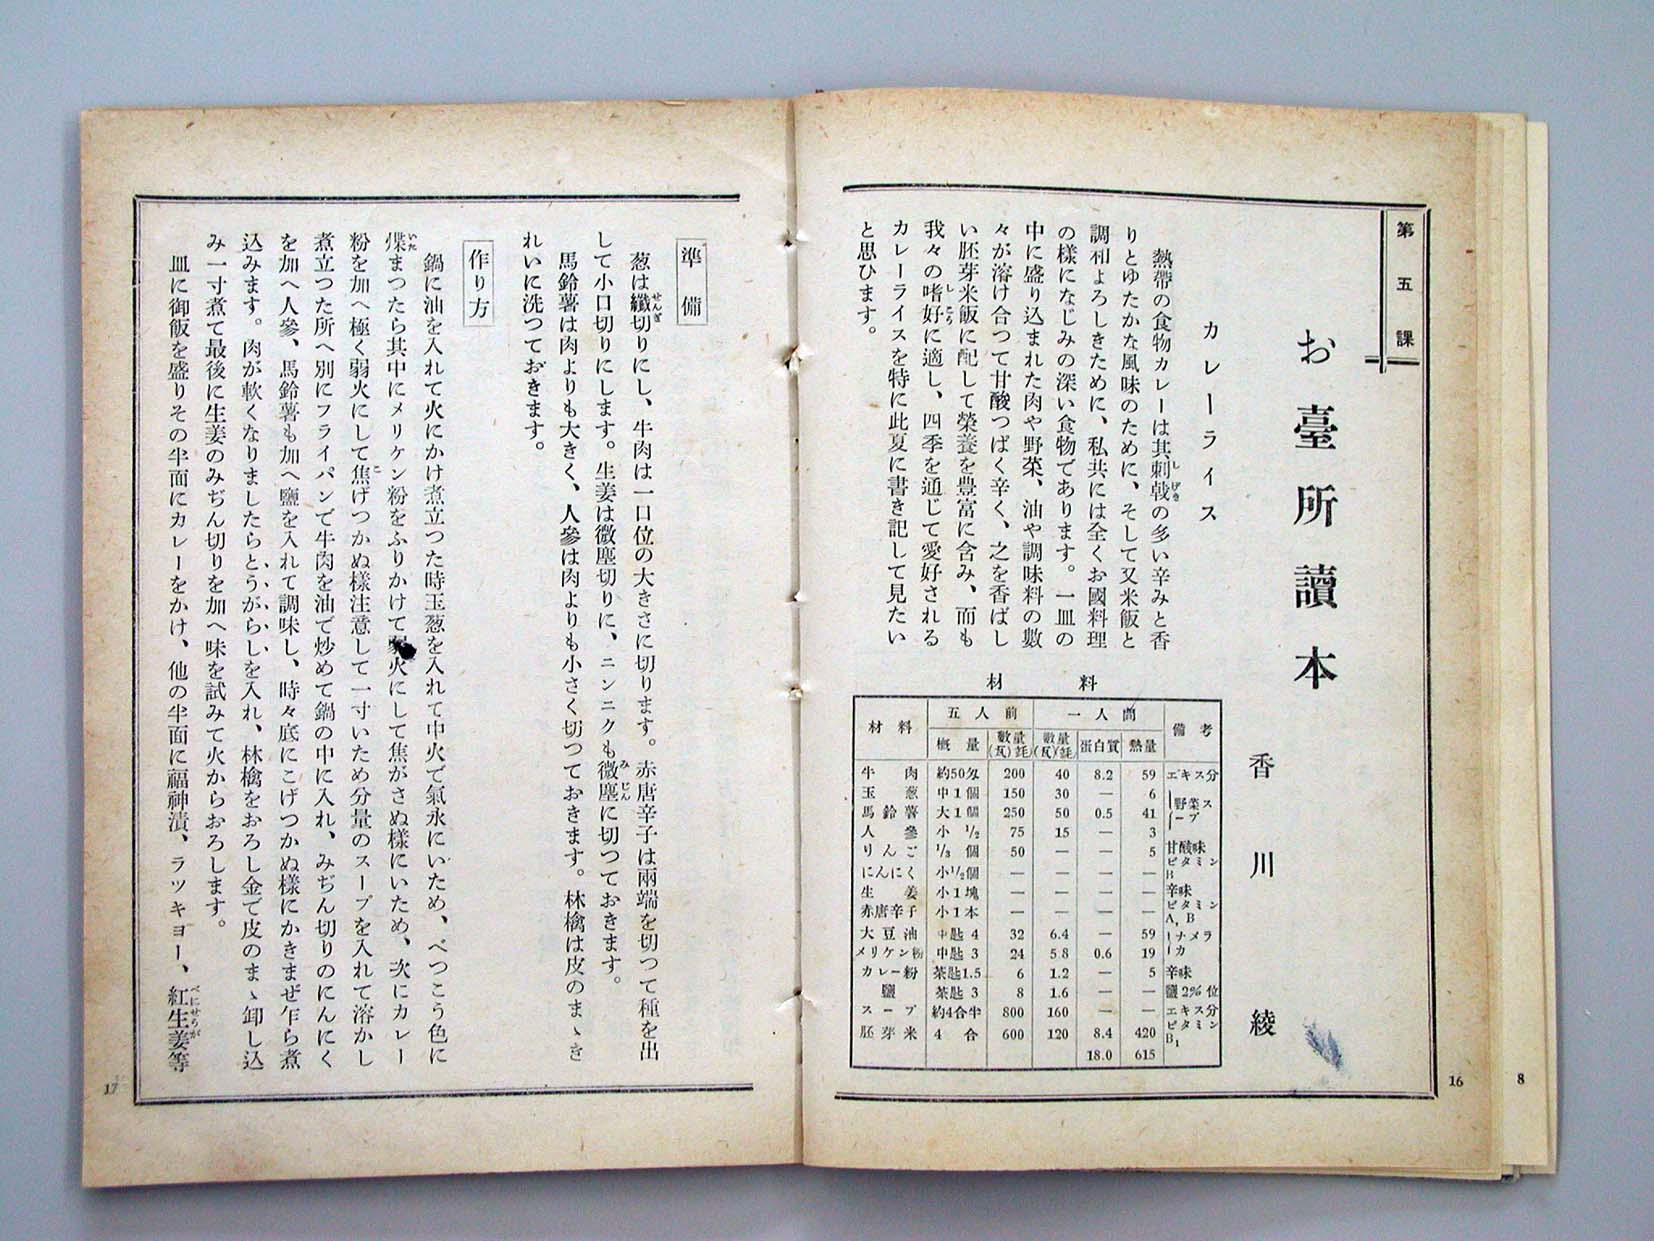 第五課
お臺所讀本
香川綾
カレーライス
熱帶の食物カレーは其刺戟の多い辛みと香
りとゆたかな風味のために、そして又米飯と
調和よろしきために、私共には全くお國料理
の樣になじみの深い食物であります。一皿の
中に盛り込まれた肉や野菜、油や調味料の數
々が溶け合つて甘酸つぱく辛く、之を香ばし
い胚芽米飯に配して榮養を豊富に含み、而も
我々の嗜好に適し、四季を通じて愛好される
カレーライスを特に此夏に書き記して見たい
と思ひます。
材料
材料 五人前 一人間 備考
概量 數量(瓦)(託) 數量(瓦)(託) 蛋白質 熱量
牛肉 約50匁 200 40 8.2 59 エキス分
玉葱 中1個 150 30 — 6 野菜ス
馬鈴薯 大1個 250 50 0.5 41 ープ
人參 小1/2 75 15 — 3
りんご 1/3個 50 — — 5 甘酸味 ビタミンB
にんにく 小1/2個 — — — —
生姜 小1塊 — — — — 辛味
赤唐辛子 小1本 — — — — ビタミンA,B
大豆油 中匙4 32 6.4 — 59 ーナメラ
メリケン粉 中匙3 24 5.8 0.6 19 カ
カレー粉 茶匙1.5 6 1.2 — 5 辛味
鹽 茶匙3 8 1.6 — — 鹽2%位
スープ 約4合半 800 160 — — エキス分
胚芽米 4合 600 120 8.4 420 ビタミンB1
18.0 615
16
8
準備
葱は纖切りにし、牛肉は一口位の大きさに切ります。赤唐辛子は兩端を切つて種を出
して小口切りにします。生姜は微塵切りに、ニンニクも微塵に切つておきます。
馬鈴薯は肉よりも大きく、人參は肉よりも小さく切つておきます。林檎は皮のまゝき
れいに洗つておきます。
作り方
鍋に油を入れて火にかけ煮立つた時玉葱を入れて中火で氣永にいため、べつこう色に
煠まつたら其中にメリケン粉をふりかけて弱火にして焦がさぬ樣にいため、次にカレー
粉を加へ極く弱火にして焦げつかぬ樣注意して一寸いため分量のスープを入れて溶かし
煮立つた所へ別にフライパンで牛肉を油で炒めて鍋の中に入れ、みぢん切りのにんにく
を加へ人參、馬鈴薯も加へ鹽を入れて調味し、時々底にこげつかぬ樣にかきまぜ乍ら煮
込みます。肉が軟くなりましたらとうがらしを入れ、林檎をおろし金で皮のまゝ卸し込
み一寸煮て最後に生姜のみぢん切りを加へ味を試みて火からおろします。
皿に御飯を盛りその半面にカレーをかけ、他の半面に福神漬、ラツキョー、紅生姜等
17